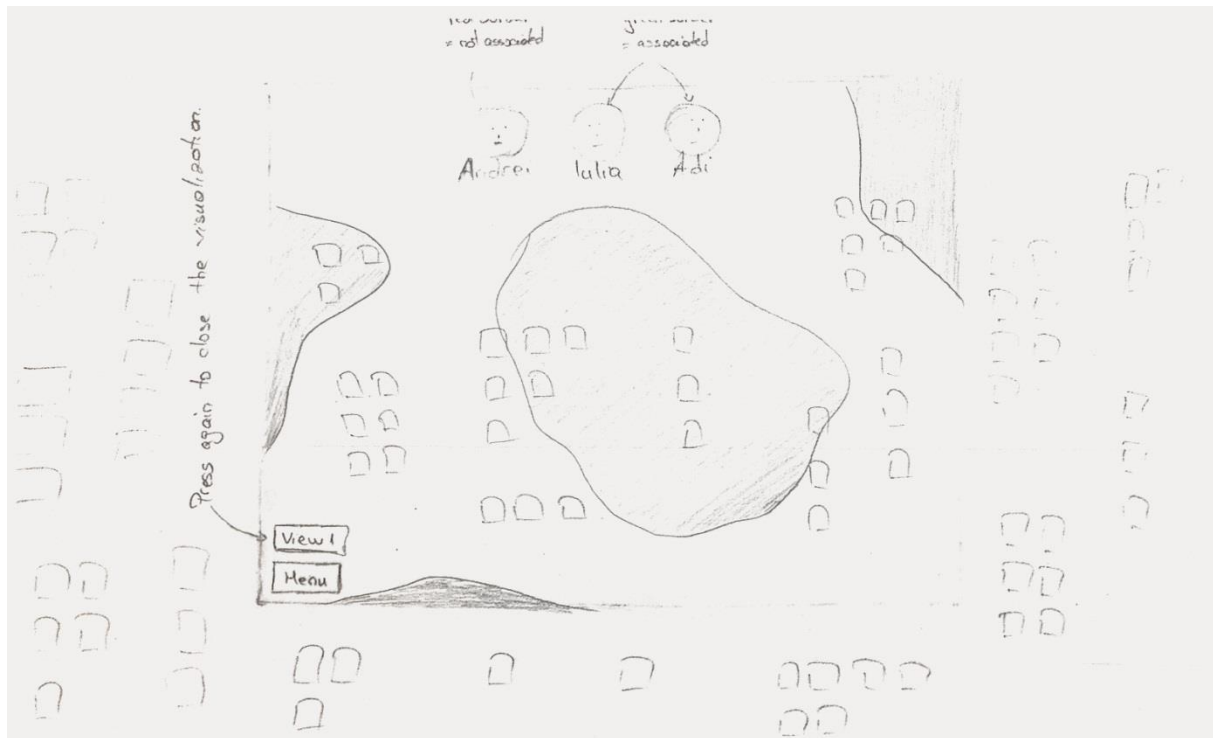 = not associated
= associated
Andrei
Iulia
Adi
Press again to close the visualization.
View 1
Menu